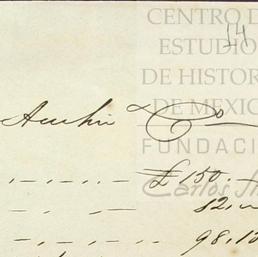 CENTRO D
ESTUDIO
14
DE HISTOR
DE MEXIC
& Co
FUNDACI
£150.
Carlos Sl
12.
98.1